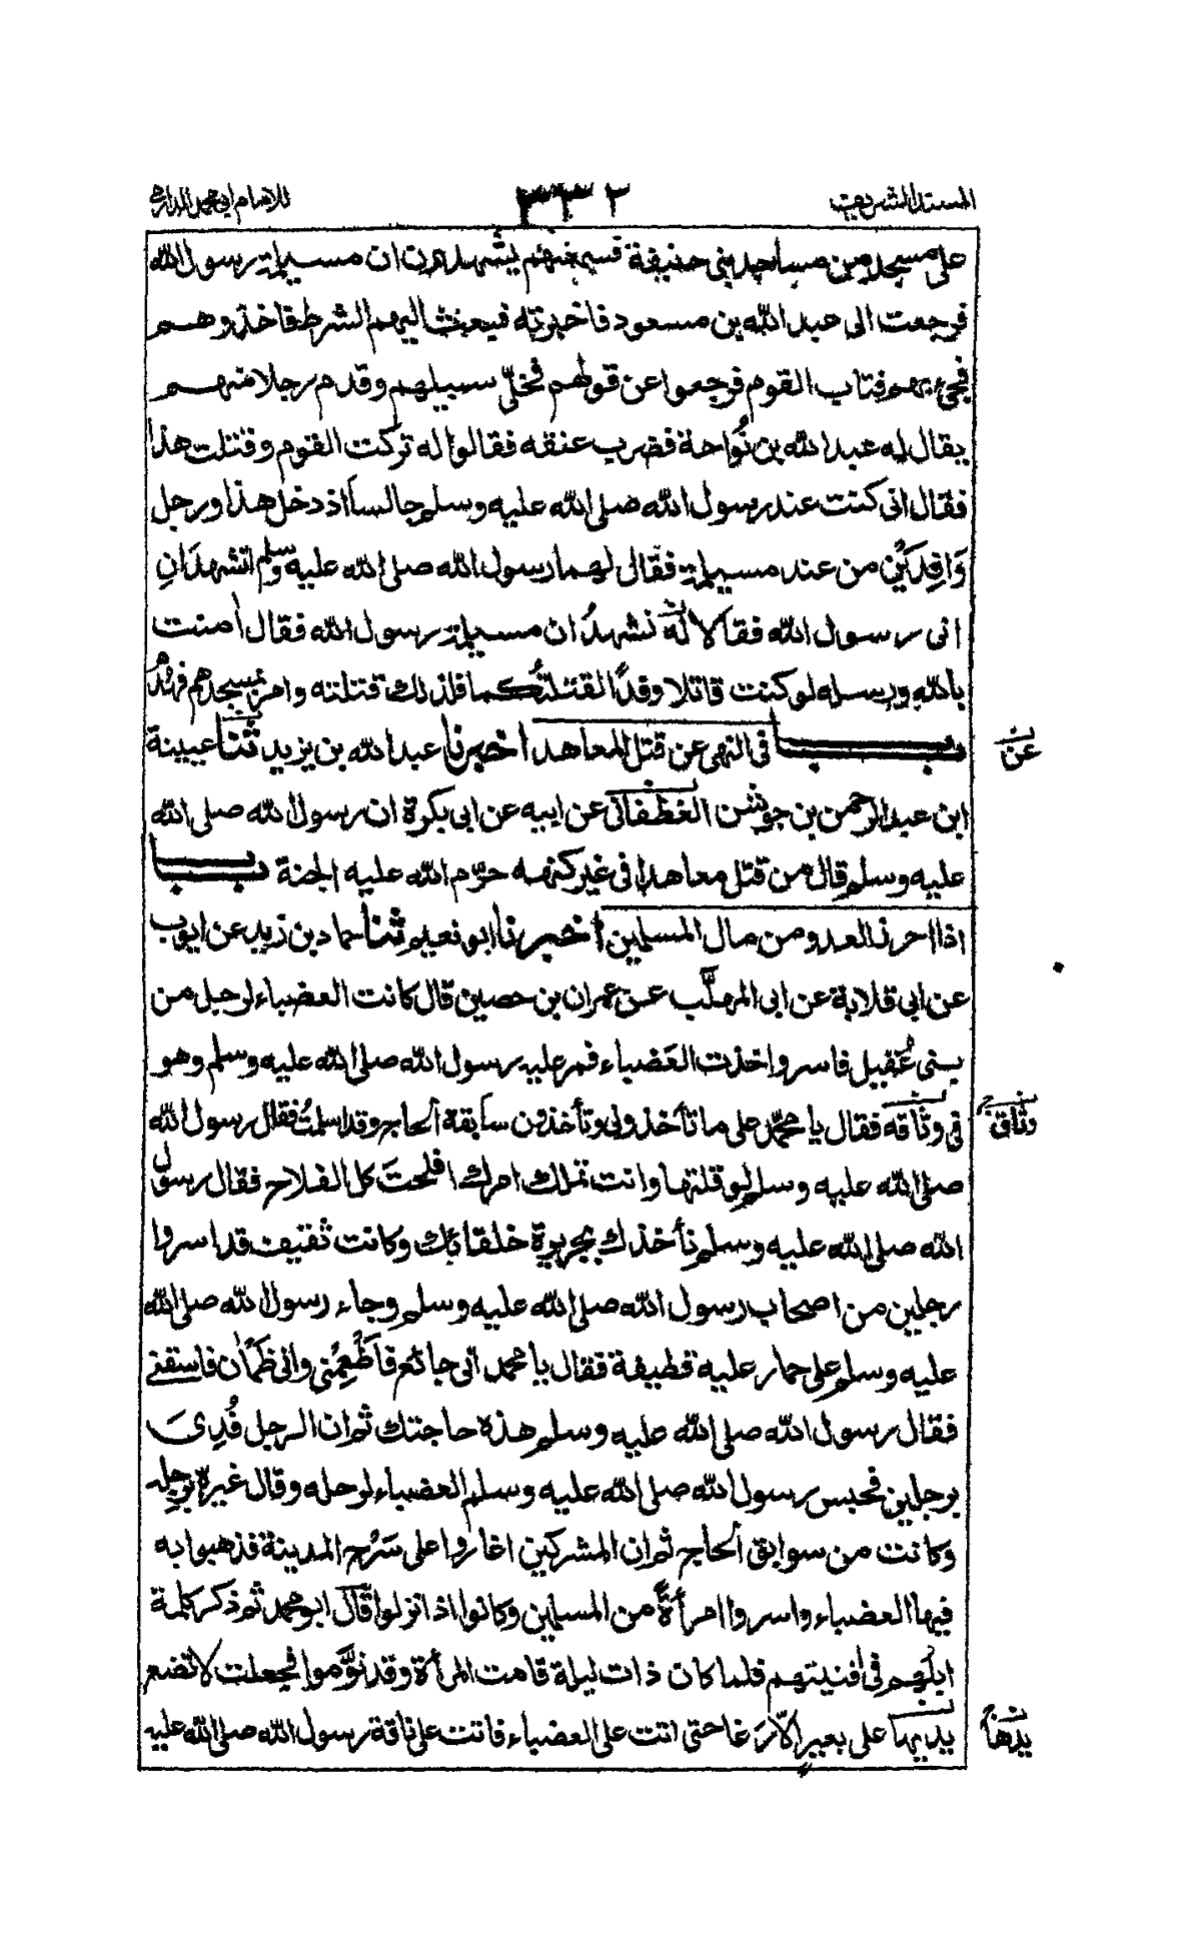 المسند الشريف ٣٣٢ للامام ابى محمد الدارمى
على مسجد من مساجد بنى حنيفة فسمعتهم يشهدون ان مسيلمة رسول الله
فرجعت الى عبد الله بن مسعود فاخبرته فبعث اليهم الشرط فاخذوهم
فجئ بهم فتاب القوم فرجعوا عن قولهم فخلّى سبيلهم وقدم رجلا منهم
يقال له عبد الله بن نُواحة فضرب عنقه فقالوا له تركت القوم وقتلت هذا
فقال انى كنت عند رسول الله صلى الله عليه وسلم جالساً اذ دخل هذا ورجل
وَافِدَيْنِ من عند مسيلمة فقال لهما رسول الله صلى الله عليه وسلم اتشهدَانِ
انى رسول الله فقالا له نشهدُ ان مسيلمة رسول الله فقال اٰمنت
بالله ورسله لو كنت قاتلا وفداً لقتلتُكما فلذلك قتلته وامر بمسجدهم فهُدُ
بـــاب فى النهى عن قتل المعاهد اخبرنا عبد الله بن يزيد ثنا عيينة
عن
ابن عبد الرحمن بن جوشن الغطفانى عن ابيه عن ابى بكرة ان رسول الله صلى الله
عليه وسلم قال من قتل معاهدا فى غير كنهه حرّم الله عليه الجنة بـــاب
اذا احرز العدو من مال المسلمين اخبرنا ابو نعيم ثنا حماد بن زيد عن ايوب
عن ابى قلابة عن ابى المهلَّب عن عمران بن حصين قال كانت العضباء لرجل من
بنى عُقيل فاسر واخذت العَضباء فمر عليه رسول الله صلى الله عليه وسلم وهو
فى وثاقه فقال يا محمّد على ما تأخذونى وتأخذون سابقة الحاج وقد اسلمتُ فقال رسول الله
وثاق
صلى الله عليه وسلم لو قلتها وانت تملك امرك افلحتَ كل الفلاح فقال رسول
الله صلى الله عليه وسلم نأخذك بجريرة خلفائك وكانت ثقيف قد اسروا
رجلين من اصحاب رسول الله صلى الله عليه وسلم وجاء رسول الله صلى الله
عليه وسلم على حمار عليه قطيفة فقال يا محمد انى جائع فاَطْعِمْنى وانى ظَمْاٰن فاسقنى
فقال رسول الله صلى الله عليه وسلم هذه حاجتك ثم ان الرجل فُدِىَ
برجلين فحبس رسول الله صلى الله عليه وسلم العضباء لرحله وقال غيره
وكانت من سوابق الحاج ثم ان المشركين اغاروا على سَرْح المدينة فذهبوا به
فيها العضباء واسروا امرأةً من المسلمين وكانوا اذا نزلوا قال ابو محمد ثم ذكر كلمة
ابلُهم فى افنيتهم فلما كان ذات ليلة قامت المرأة وقد نُوِّموا فجعلت لا تضع
يديها على بعير الّا رَغا حتى اتت على العضباء فاتت على ناقة رسول الله صلى الله عليه
يدها